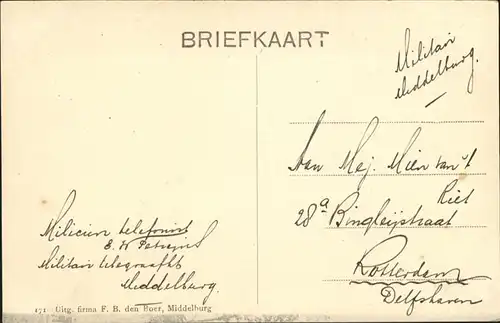 BRIEFKAART
Militair
Middelburg.
Aan Mej. Mien van 't
Riet
28a Bingleystraat
Rotterdam
Delfshaven
Milicien telefonist
E. W
Militair telegraafkt
Middelburg.
171 Uitg. firma F. B. den Boer, Middelburg